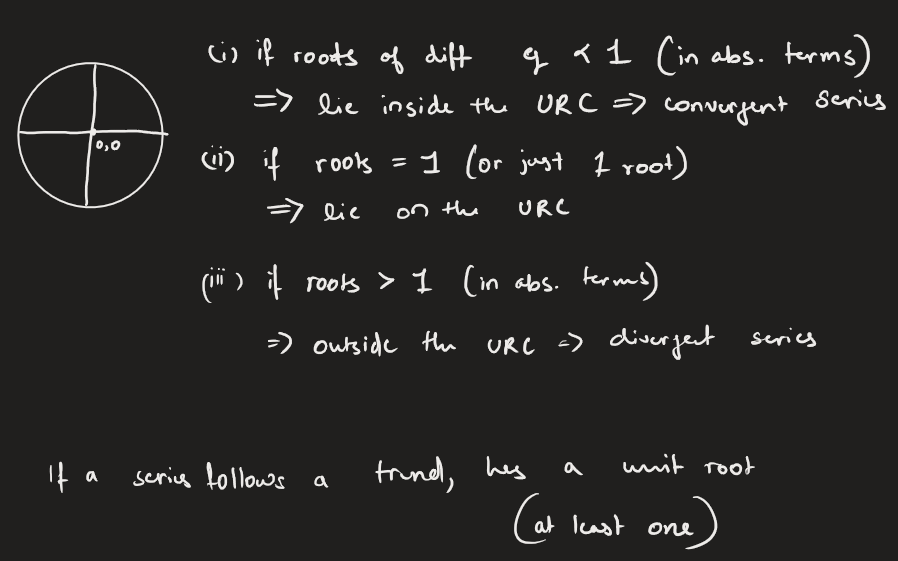 (i) if roots of diff eq < 1 (in abs. terms)
=> lie inside the URC => convergent series
0,0
(ii) if roots = 1 (or just 1 root)
=> lie on the URC
(iii) if roots > 1 (in abs. terms)
=> outside the URC => divergent series
If a series follows a trend, has a unit root
(at least one)